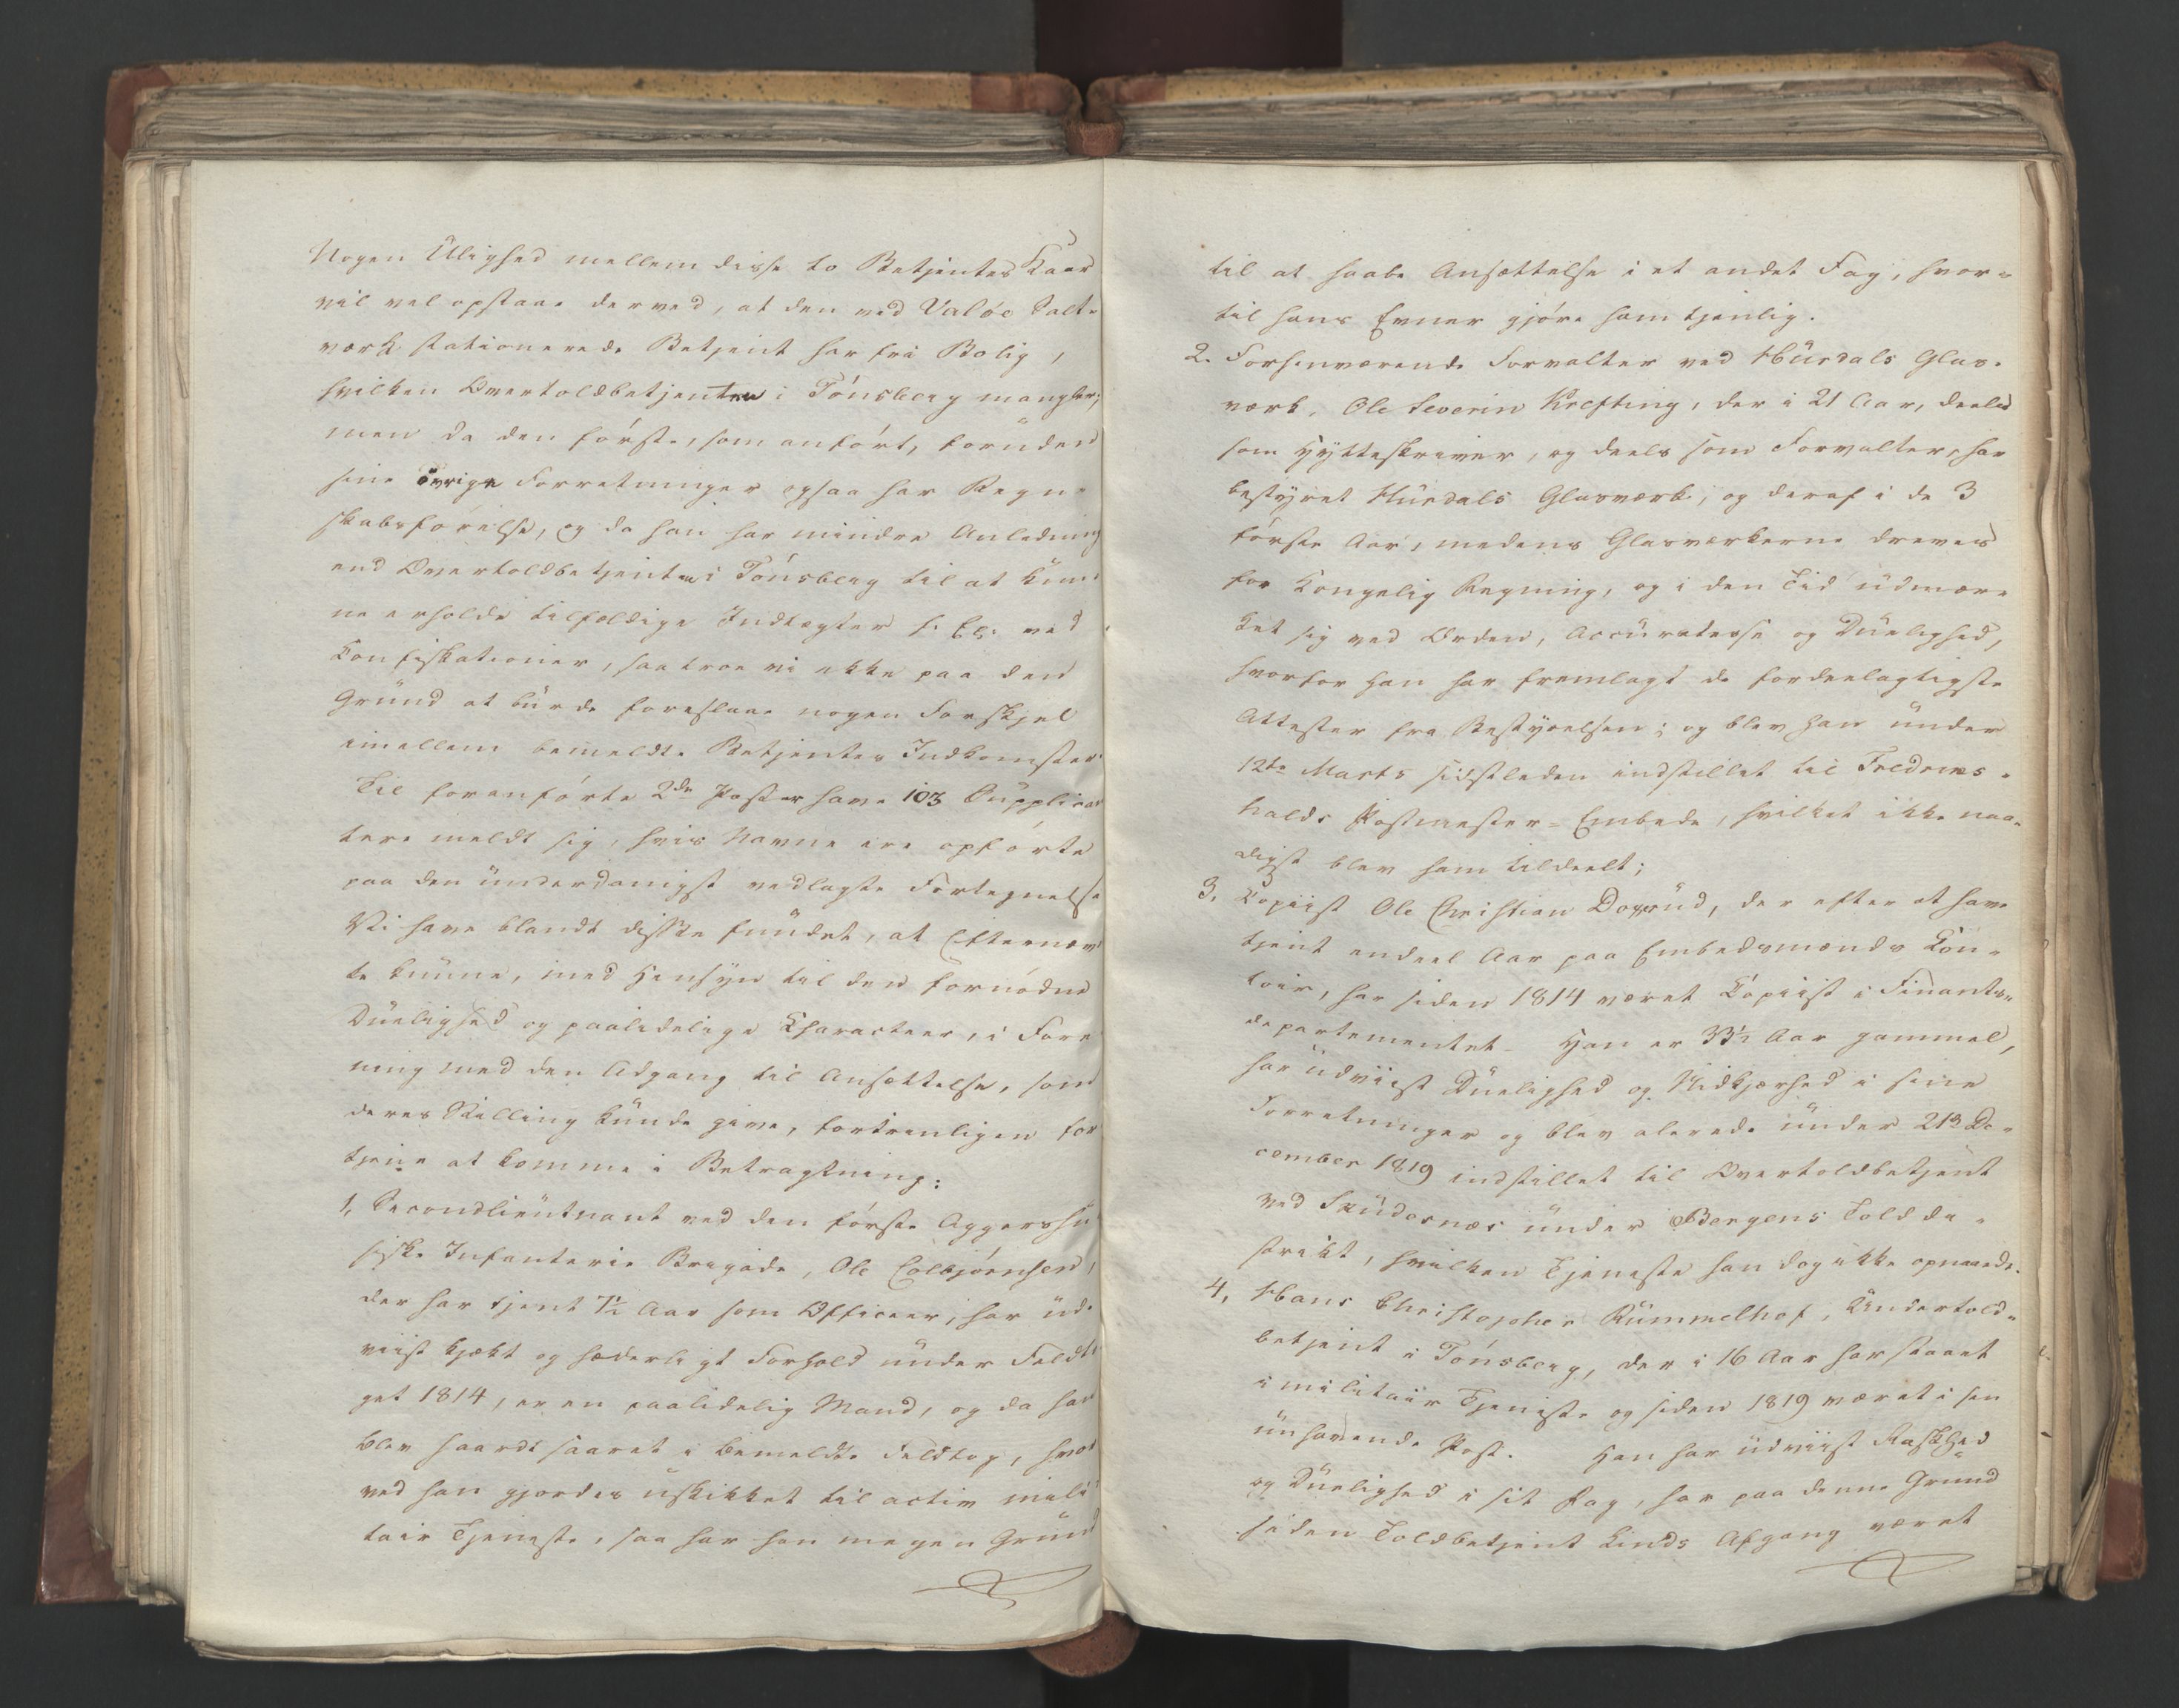 Nogen Ulighed mellem disse to Betjentes Kaar
vil vel opstaae derved, at den ved Valöe Salt-
værk stationerede Betjent har fri Bolig,
hvilken Overtoldbetjenten i Tönsberg mangler;
men da den förste, som anfört, foruden
sine övrige Forretninger ogsaa har Regn-
skabsförelse, og da han har mindre Anledning
end Overtoldbetjenten i Tönsberg til at kun-
ne erholde tilfældige Indtægter f. Ex. ved
Confiskationer, saa troe vi ikke paa den
Grund at burde foreslaae nogen Forskjel
imellem bemeldte Betjentes Indkomster.
Til foranförte 2de Poster have 103 Supplican-
tere meldt sig, hvis Navne ere opförte
paa den underdanigst vedlagte Fortegnelse
Vi have blandt disse fundet, at Efternævn-
te kunne, med Hensyn til den fornödne
Duelighed og paalidelige Characteer, i Fore-
ning med den Adgang til Ansættelse, som
deres Stilling kunde give, fortrinligen for-
tjene at komme i Betragtning:
1, Secondlieutnant ved den förste Aggershu-
siske Infanterie Brigade, Ole Colbjörnsen,
der har tjent 7½ Aar som Officeer, har ud-
viist kjækt og hæderligt Forhold under Feldto-
get 1814, er en paalidelig Mand, og da han
blev haardt saaret i bemeldte Feldtog, hvor-
ved han gjordes uskikket til activ mili-
tair Tjeneste, saa har han megen Grund
til at haabe Ansættelse i et andet Fag, hvor-
til hans Evner gjöre ham tjenlig.
2. Forhenværende Forvalter ved Hurdals Glas-
værk, Ole Severin Krefting, der i 21 Aar, deels
som Hytteskriver, og deels som Forvalter, har
bestyret Hurdals Glasværk, og deraf i de 3
förste Aar, medens Glasværkerne dreves
for Kongelig Regning, og i den Tid udmær-
ket sig ved Orden, Accuratesse og Duelighed,
hvorfor han har fremlagt de fordeelagtigste
Attester fra Bestyrelsen; og blev han under
12te Marts sidstleden indstillet til Fredriks-
halds Postmester-Embede, hvilket ikke naa-
digst blev ham tildeelt;
3. Copiist Ole Christian Doxrud, der efter at have
tjent endeel Aar paa Embedsmænds Con-
toir, har siden 1814 været Copiist i Finants-
departementet. Han er 33½ Aar gammel,
har udviist Duelighed og Nidkjærhed i sine
Forretninger og blev alerede under 21de De-
cember 1819 indstillet til Overtoldbetjent
ved Skudesnæs under Bergens Tolddi-
strikt, hvilken Tjeneste han dog ikke opnaaede.
4, Hans Christopher Rummelhof, Undertold-
betjent i Tönsberg, der i 16 Aar har staaet
i militair Tjeneste og siden 1819 været i sin
innhavende Post. Han har udviist Raskhed
og Duelighed i sit Fag, har paa denne Grund
siden Toldbetjent Linds Afgang været